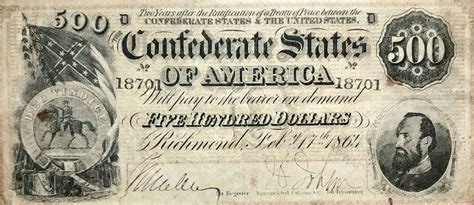 Two Years after the Ratification of a Treaty of Peace between the
CONFEDERATE STATES & THE UNITED STATES.
500 D D
Confederate States
500
No 18701 No 18701
OF AMERICA
Will pay to the bearer on demand
FIVE HUNDRED DOLLARS
Richmond, Feby. 17th 1864
for Register
for Treasurer